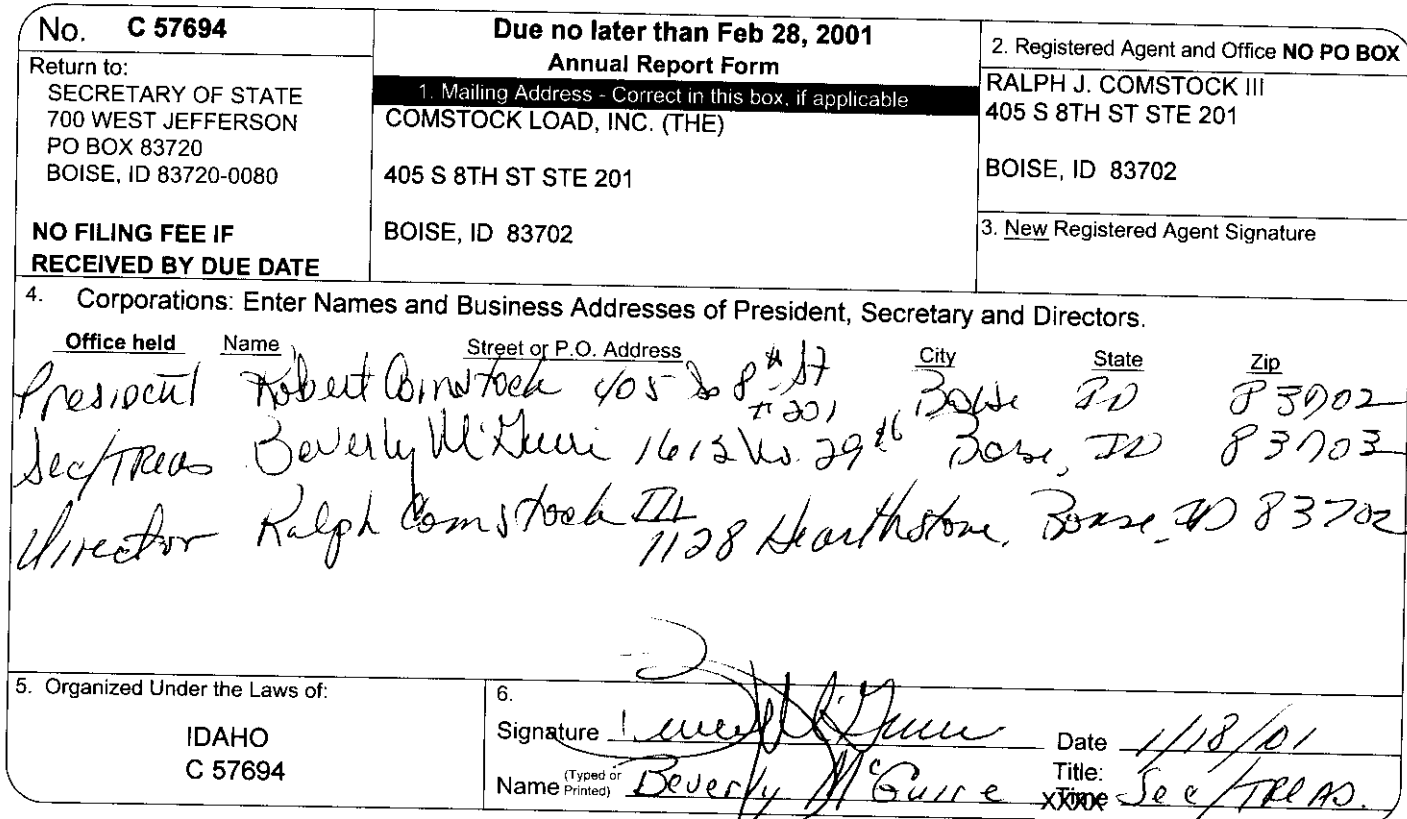 No. C 57694
Return to:
SECRETARY OF STATE
700 WEST JEFFERSON
PO BOX 83720
BOISE, ID 83720-0080
NO FILING FEE IF
RECEIVED BY DUE DATE
Due no later than Feb 28, 2001
Annual Report Form
1. Mailing Address - Correct in this box, if applicable
COMSTOCK LOAD, INC. (THE)
405 S 8TH ST STE 201
BOISE, ID 83702
2. Registered Agent and Office NO PO BOX
RALPH J. COMSTOCK III
405 S 8TH ST STE 201
BOISE, ID 83702
3. New Registered Agent Signature
4. Corporations: Enter Names and Business Addresses of President, Secretary and Directors.
Office held Name Street or P.O. Address City State Zip
President Robert Comstock 405 So 8th St #201 Boise ID 83702
Sec/Treas Beverly McGuire 1612 No. 29th Boise, ID 83703
Director Ralph Comstock III 1128 Hearthstone, Boise, ID 83702
5. Organized Under the Laws of:
IDAHO
C 57694
6.
Signature Date 1/18/01
Name (Typed or Printed) Beverly McGuire Title: Sec/TREAS.